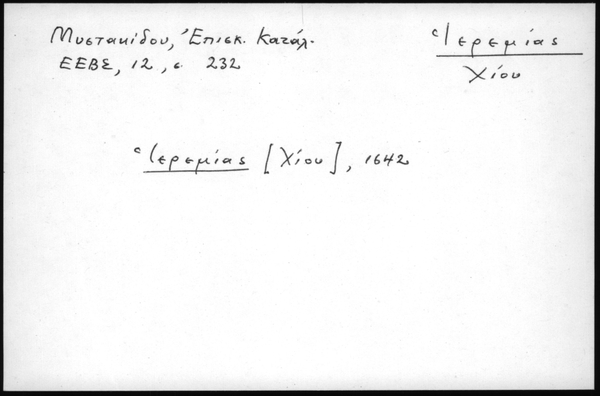 Μυστακίδου, Ἐπισκ. Κατάλ.
ΕΕΒΣ, 12, σ. 232
Ἱερεμίας
Χίου
Ἱερεμίας [Χίου], 1642